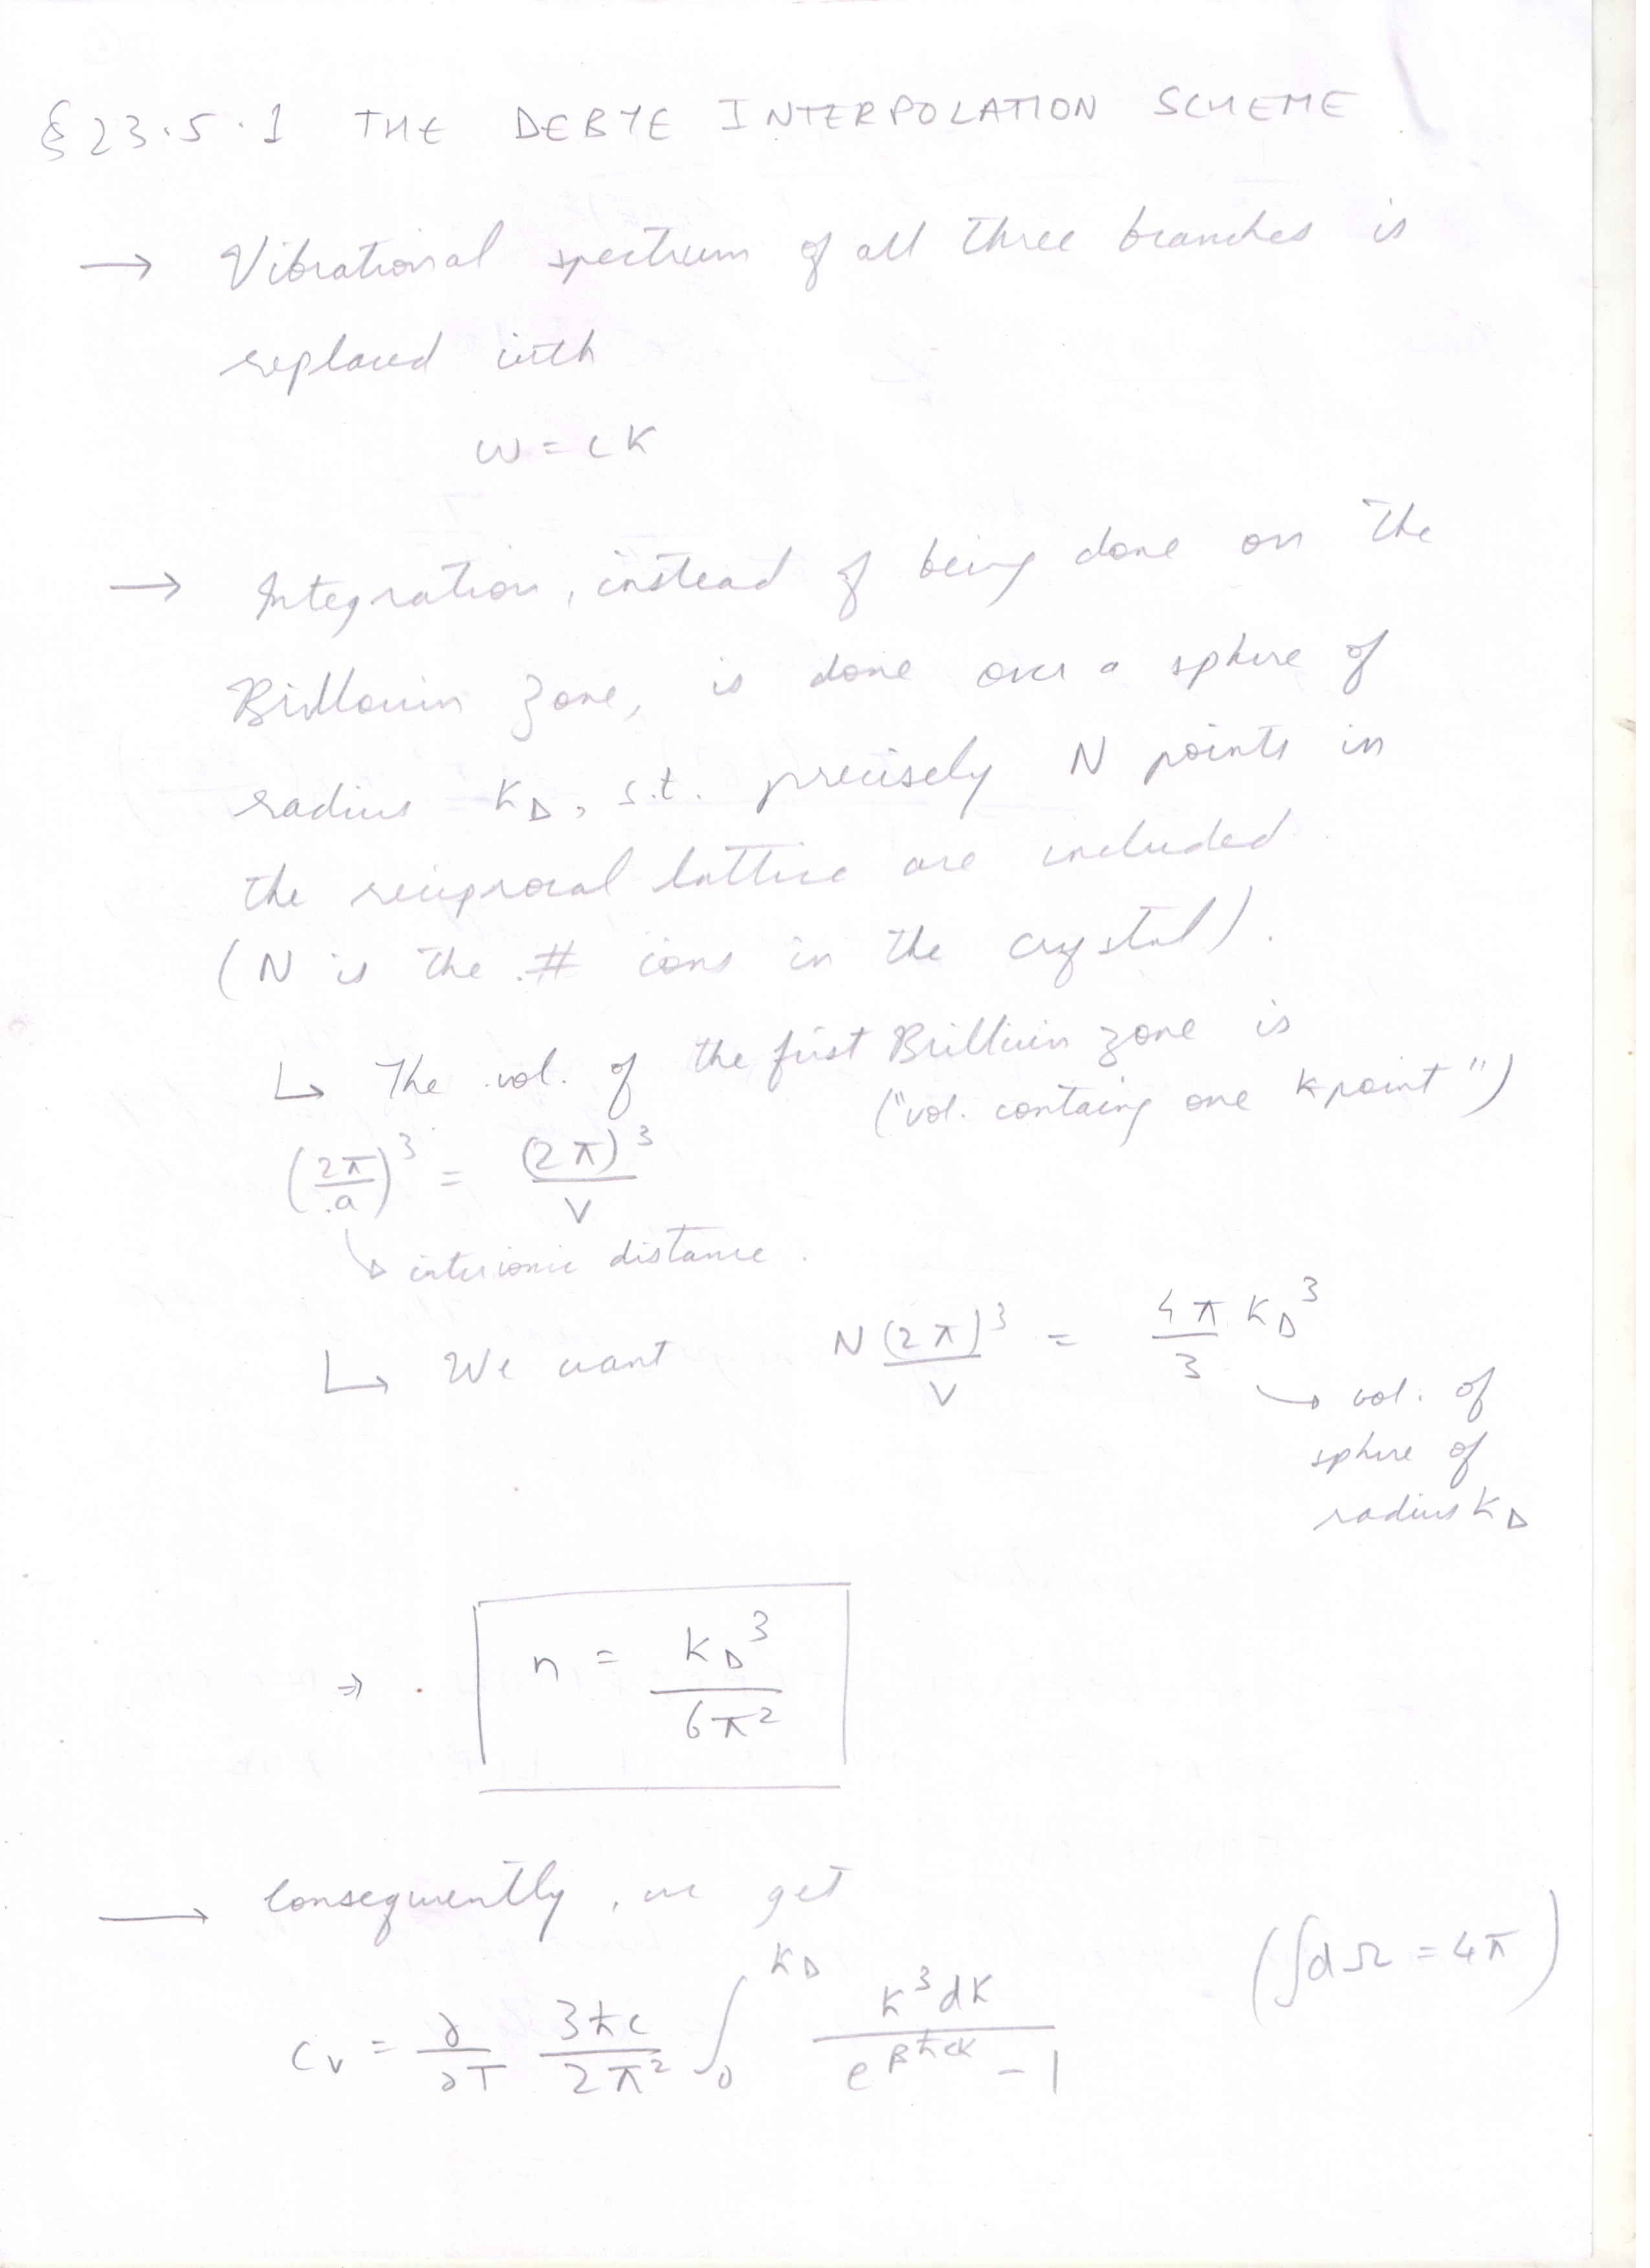 § 23.5.1 THE DEBYE INTERPOLATION SCHEME
→ Vibrational spectrum of all three branches is
replaced with
ω = cK
→ Integration, instead of being done on the
Brillouin zone, is done over a sphere of
radius K_D, s.t. precisely N points in
the reciprocal lattice are included
(N is the # ions in the crystal).
↳ The vol. of the first Brillioin zone is
("vol. containg one k point")
(2π/a)³ = (2π)³/V
↳ interionic distance.
↳ We want N(2π)³/V = 4π/3 K_D³
→ vol. of
sphere of
radius K_D
⇒ n = K_D³/6π²
→ Consequently, we get
(∫dΩ = 4π)
C_v = ∂/∂T 3ħc/2π² ∫₀^{K_D} K³dK/(e^{βħcK} - 1)